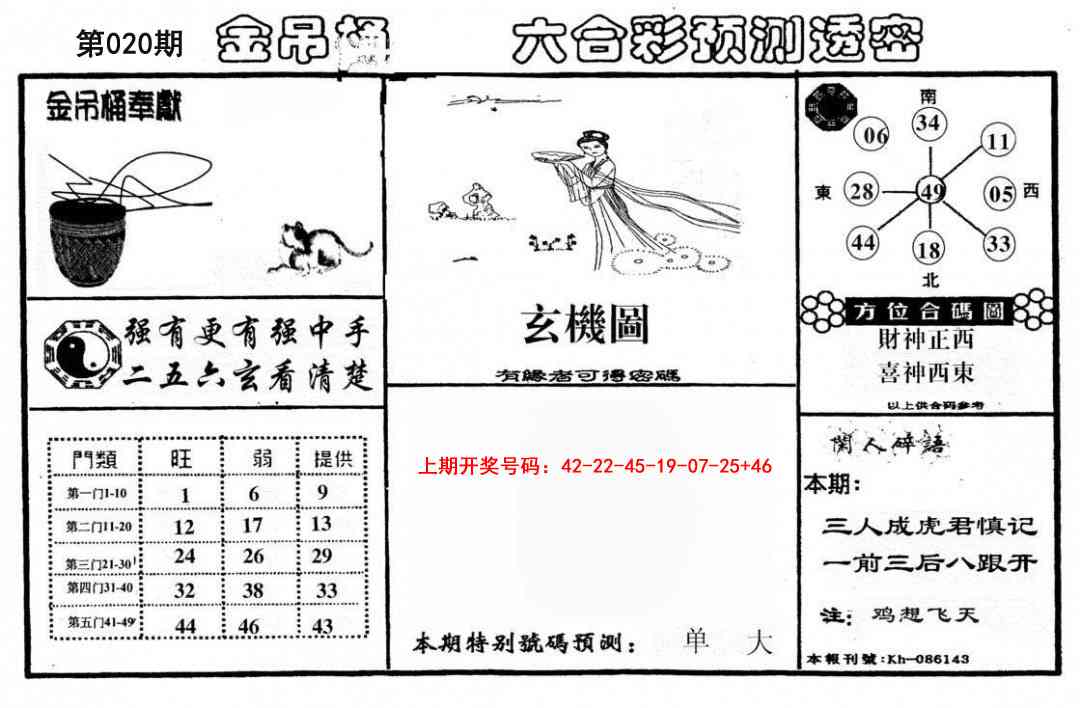 第020期
金吊桶
六合彩预测透密
金吊桶奉獻
强有更有强中手
二五六玄看清楚
門類 旺 弱 提供
第一门1-10 1 6 9
第二门11-20 12 17 13
第三门21-30 24 26 29
第四门31-40 32 38 33
第五门41-49 44 46 43
玄機圖
有緣者可得密碼
上期开奖号码：42-22-45-19-07-25+46
本期特别號碼預测： 单 大
南
06 34 11
東 28 49 05 西
44 18 33
北
方位合碼圖
財神正西
喜神西東
以上供合码参考
閑人碎語
本期：
三人成虎君慎记
一前三后八跟开
注：鸡想飞天
本報刊號:Kh-086143